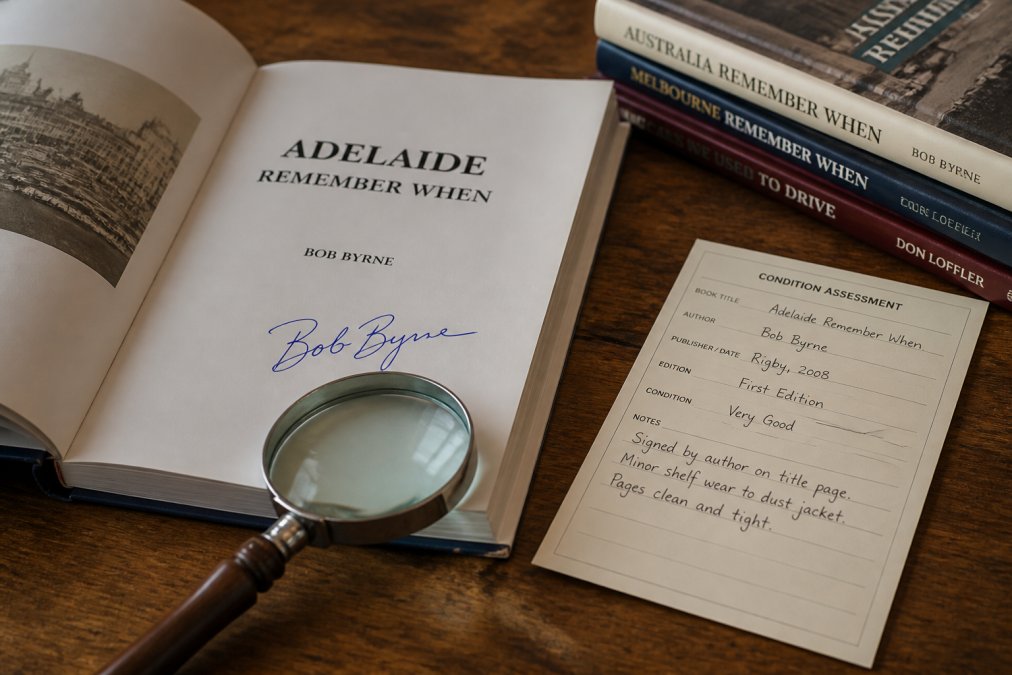 ADELAIDE
REMEMBER WHEN
BOB BYRNE
Bob Byrne
AUSTRALIA REMEMBER WHEN BOB BYRNE
MELBOURNE REMEMBER WHEN
WE USED TO DRIVE DON LOFFLER
CONDITION ASSESSMENT
BOOK TITLE Adelaide Remember When
AUTHOR Bob Byrne
PUBLISHER / DATE Rigby, 2008
EDITION First Edition
CONDITION Very Good
NOTES
Signed by author on title page.
Minor shelf wear to dust jacket.
Pages clean and tight.